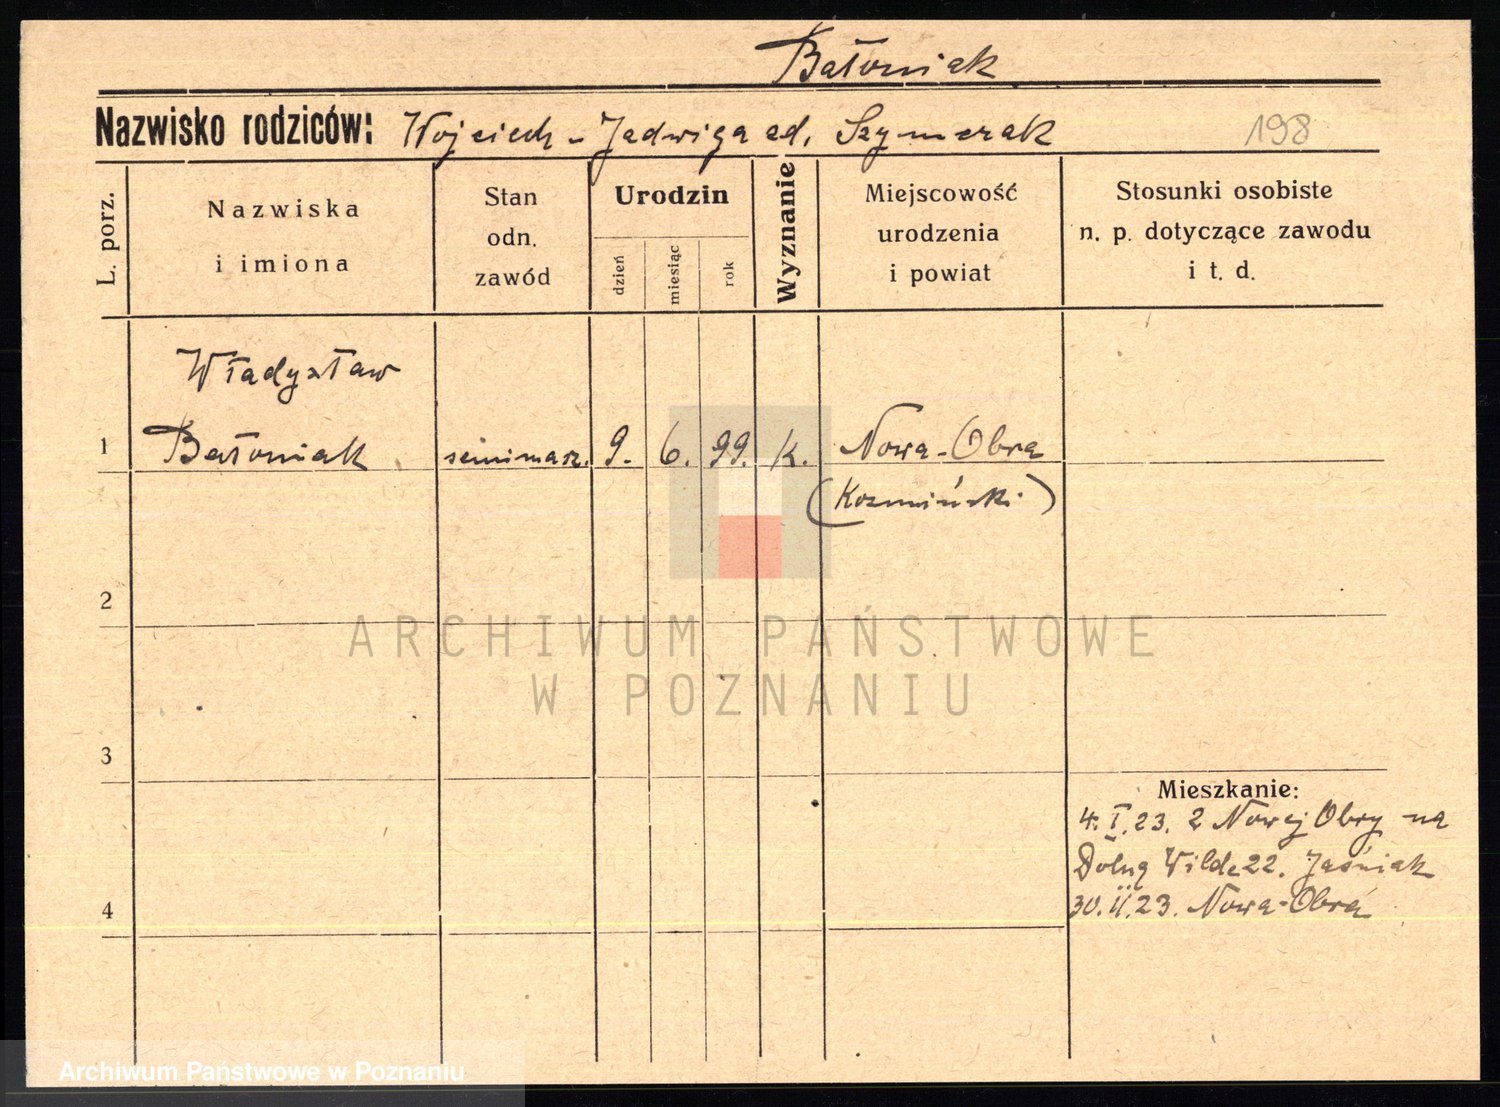 Bałoniak
Nazwisko rodziców: Wojciech - Jadwiga ed. Szymczak 198
L. porz.
Nazwiska
i imiona
Stan
odn.
zawód
Urodzin
dzień
miesiąc
rok
Wyznanie
Miejscowość
urodzenia
i powiat
Stosunki osobiste
n. p. dotyczące zawodu
i t. d.
Władysław
1 Bałoniak 9. 6. 99. K. Nowa-Obra
(Koźmiński)
2
ARCHIWUM PAŃSTWOWE
W POZNANIU
3
Mieszkanie:
4. I. 23. z Nowej Obry na
Dolną Wildę 22. Jaśniak
4
30. II. 23. Nowa-Obra
Archiwum Państwowe w Poznaniu